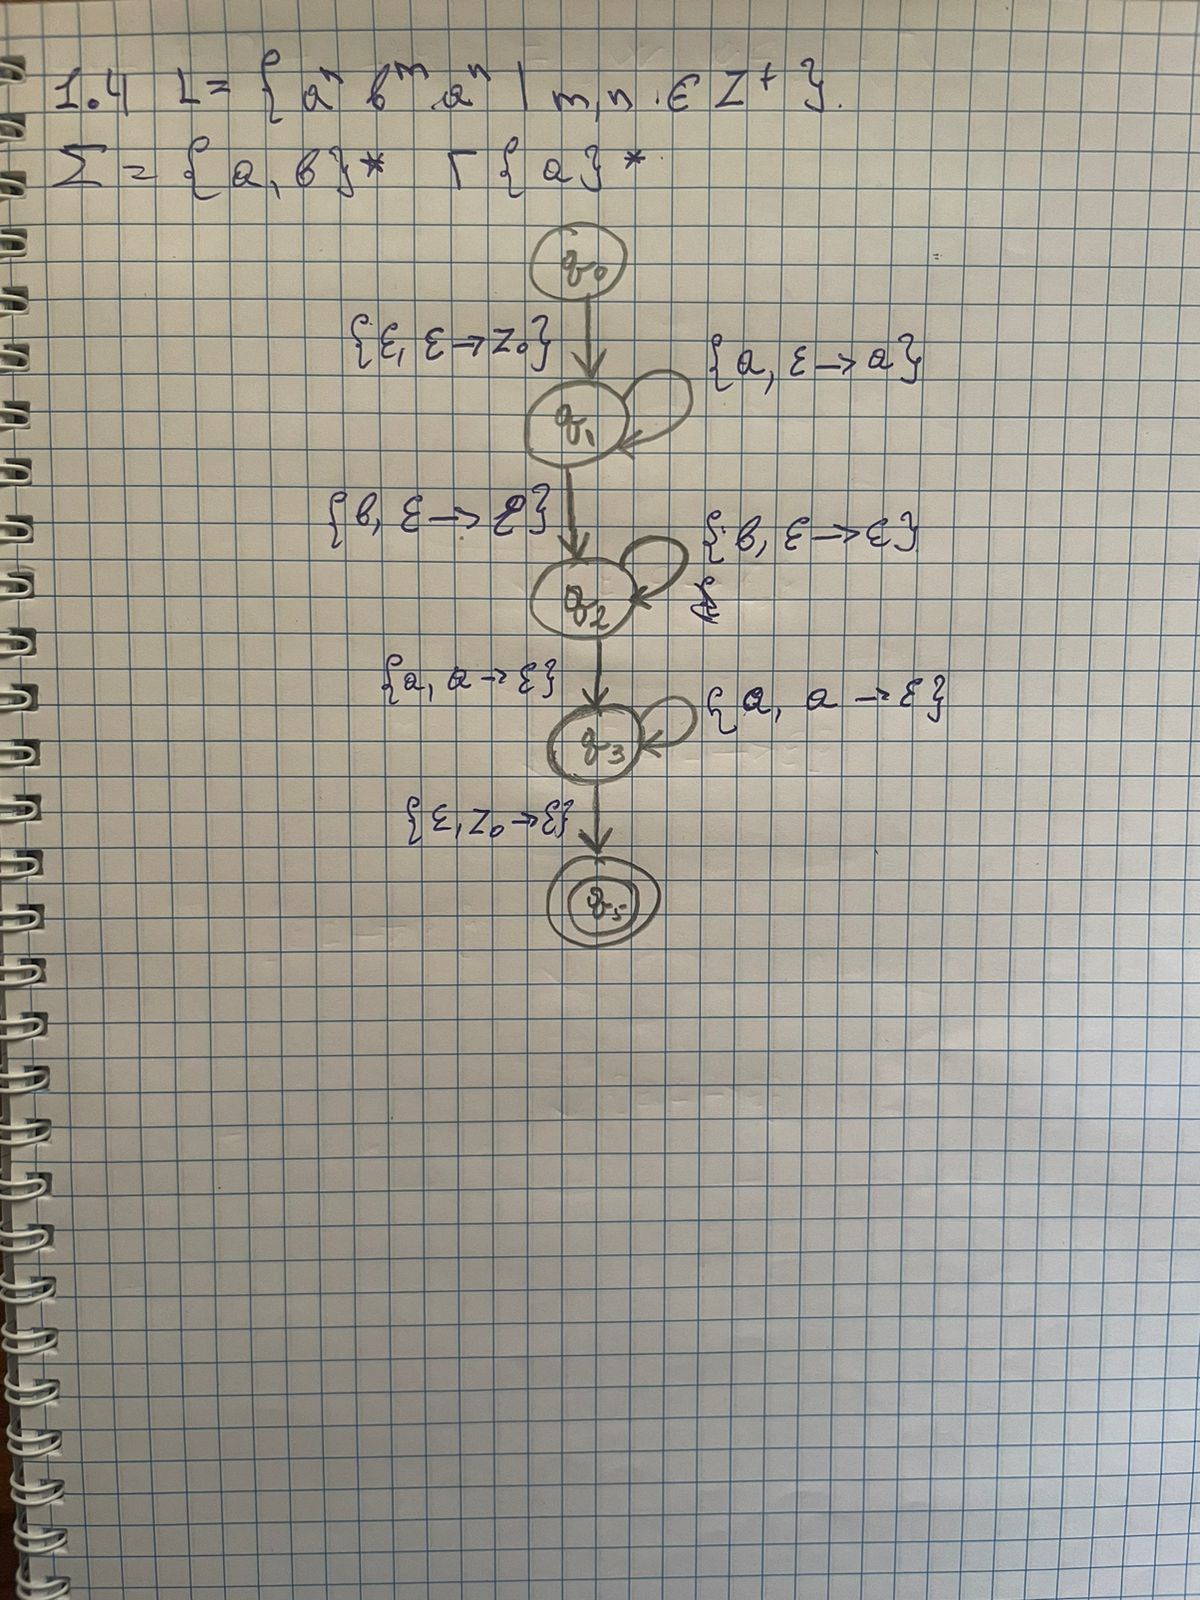 1.4 L = { aⁿ bᵐ aⁿ | m,n ∈ Z⁺ }.
Σ = {a, b}* Γ {a}*
q₀
{ε, ε→z₀}
{a, ε→a}
q₁
{b, ε→ε}
{b, ε→ε}
q₂
{a, a→ε}
{a, a→ε}
q₃
{ε, z₀→ε}
q₅